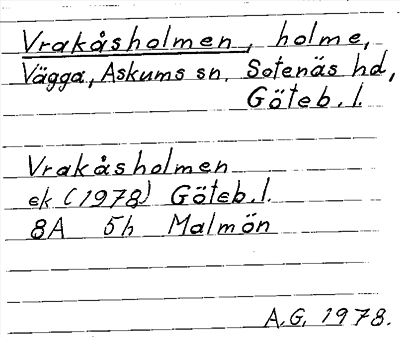 Vrakåsholmen, holme,
Vägga, Askums sn. Sotenäs hd,
Göteb. l.
Vrakåsholmen
ek (1978) Göteb. l.
8A 5h Malmön
A.G. 1978.